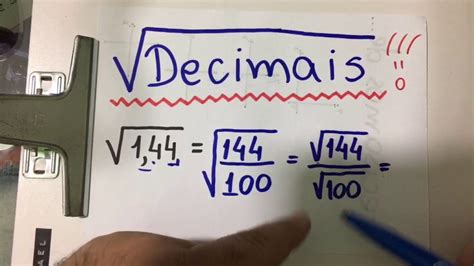 √Decimais !!!
√1,44 = √144/100 = √144/√100 =
AEL